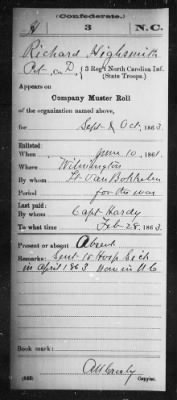 (Confederate.)
H 3 N.C.
Richard Highsmith
Pvt Co. D, 3 Reg't North Carolina Inf.
(State Troops.)
Appears on
Company Muster Roll
of the organization named above,
for Sept & Oct, 1863.
Enlisted:
When June 10, 1861.
Where Wilmington
By whom Lt. Van Bokkelen
Period for the war
Last paid:
By whom Capt Hardy
To what time Feb 28, 1863.
Present or absent Absent
Remarks: Sent to Hosp Sick
in April 1863 Now in N.C
Book mark:
Copyist.